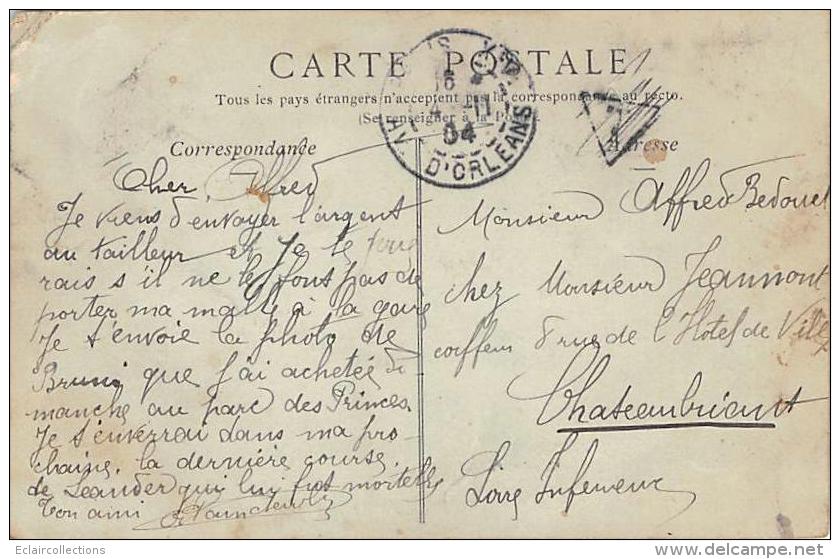 CARTE POSTALE
Tous les pays étrangers n'acceptent pas la correspondance au recto.
(Se renseigner à la Poste)
Correspondance
Adresse
AV. D'ORLEANS
04
Cher Alfred
Je viens d'envoyer l'argent
au tailleur et Je le
rais s'il ne le font pas de
porter ma malle à la gare
Je t'envoie la photo de
Bruni que j'ai achetée di
manche au parc des Princes.
Je t'enverrai dans ma pro-
chaine, la dernière course
de Leander qui lui fut mortelle
Ton ami
Monsieur Alfred Bedouet
chez Monsieur Jeannont
coiffeur 8 rue de l'Hotel de Ville
Chateaubriant
Loire Inferieure
Eclaircollections
www.delcampe.net